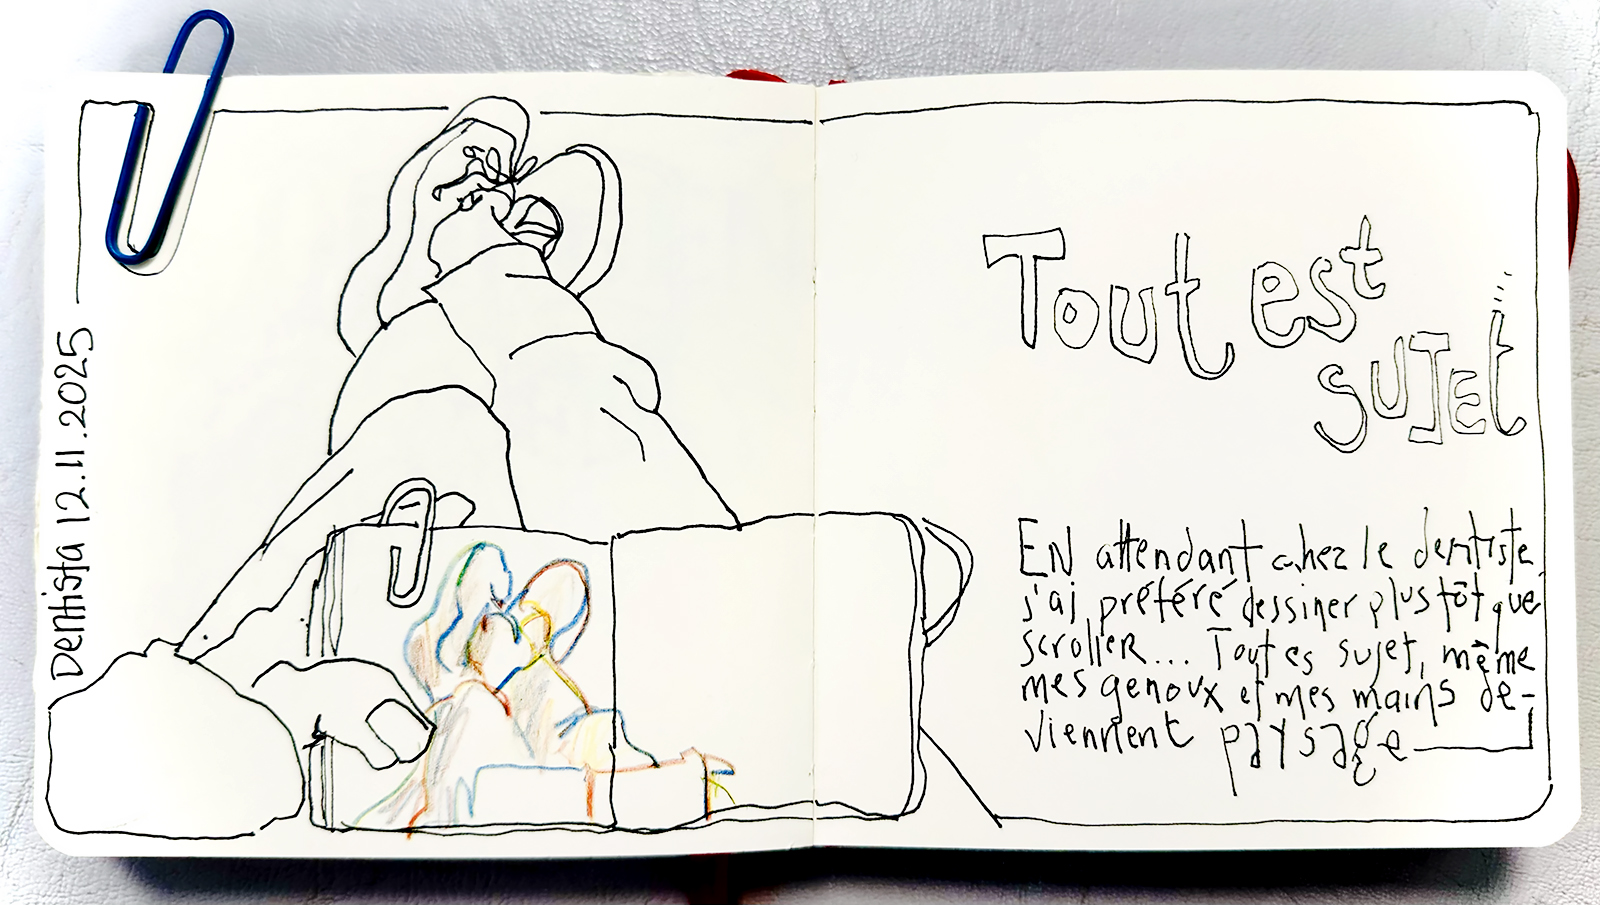 Dentista 12.11.2025
Tout est
sujet
EN attendant chez le dentiste
j'ai préféré dessiner plustôt que
scroller... Tout es sujet, même
mes genoux et mes mains de-
viennent paysage